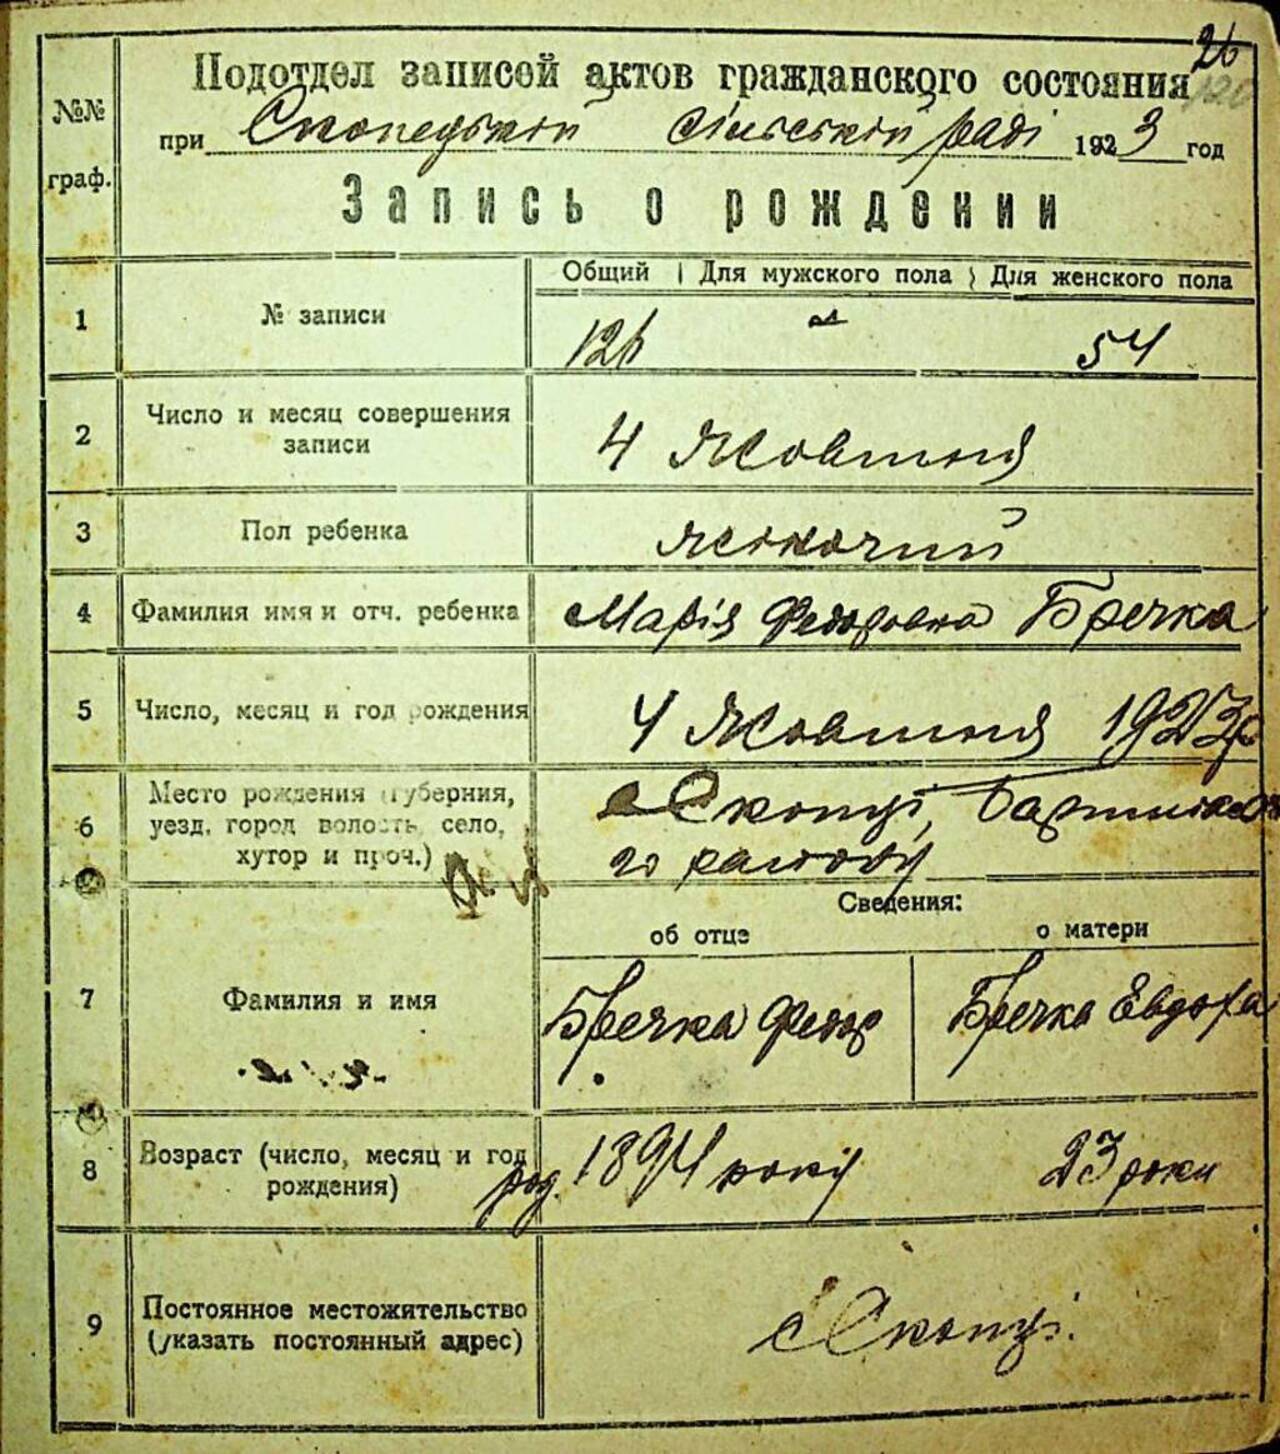 26
120
№№ граф.
Подотдел записей актов гражданского состояния
при Скопецькій сільській раді 1923 год
Запись о рождении
Общий Для мужского пола Для женского пола
1 № записи 126 54
2 Число и месяц совершения
записи 4 Жовтня
3 Пол ребенка жіночий
4 Фамилия имя и отч. ребенка Марія Федоровна Бречка
5 Число, месяц и год рождения 4 Жовтня 1923р
6 Место рождения (губерния,
уезд, город волость, село,
хутор и проч.)
с Скопці,
го району
Сведения:
об отце о матери
7 Фамилия и имя Бречка Федор Бречка Евдоха
8 Возраст (число, месяц и год
рождения) род. 1894 року 23 роки
9 Постоянное местожительство
(указать постоянный адрес) с Скопці.